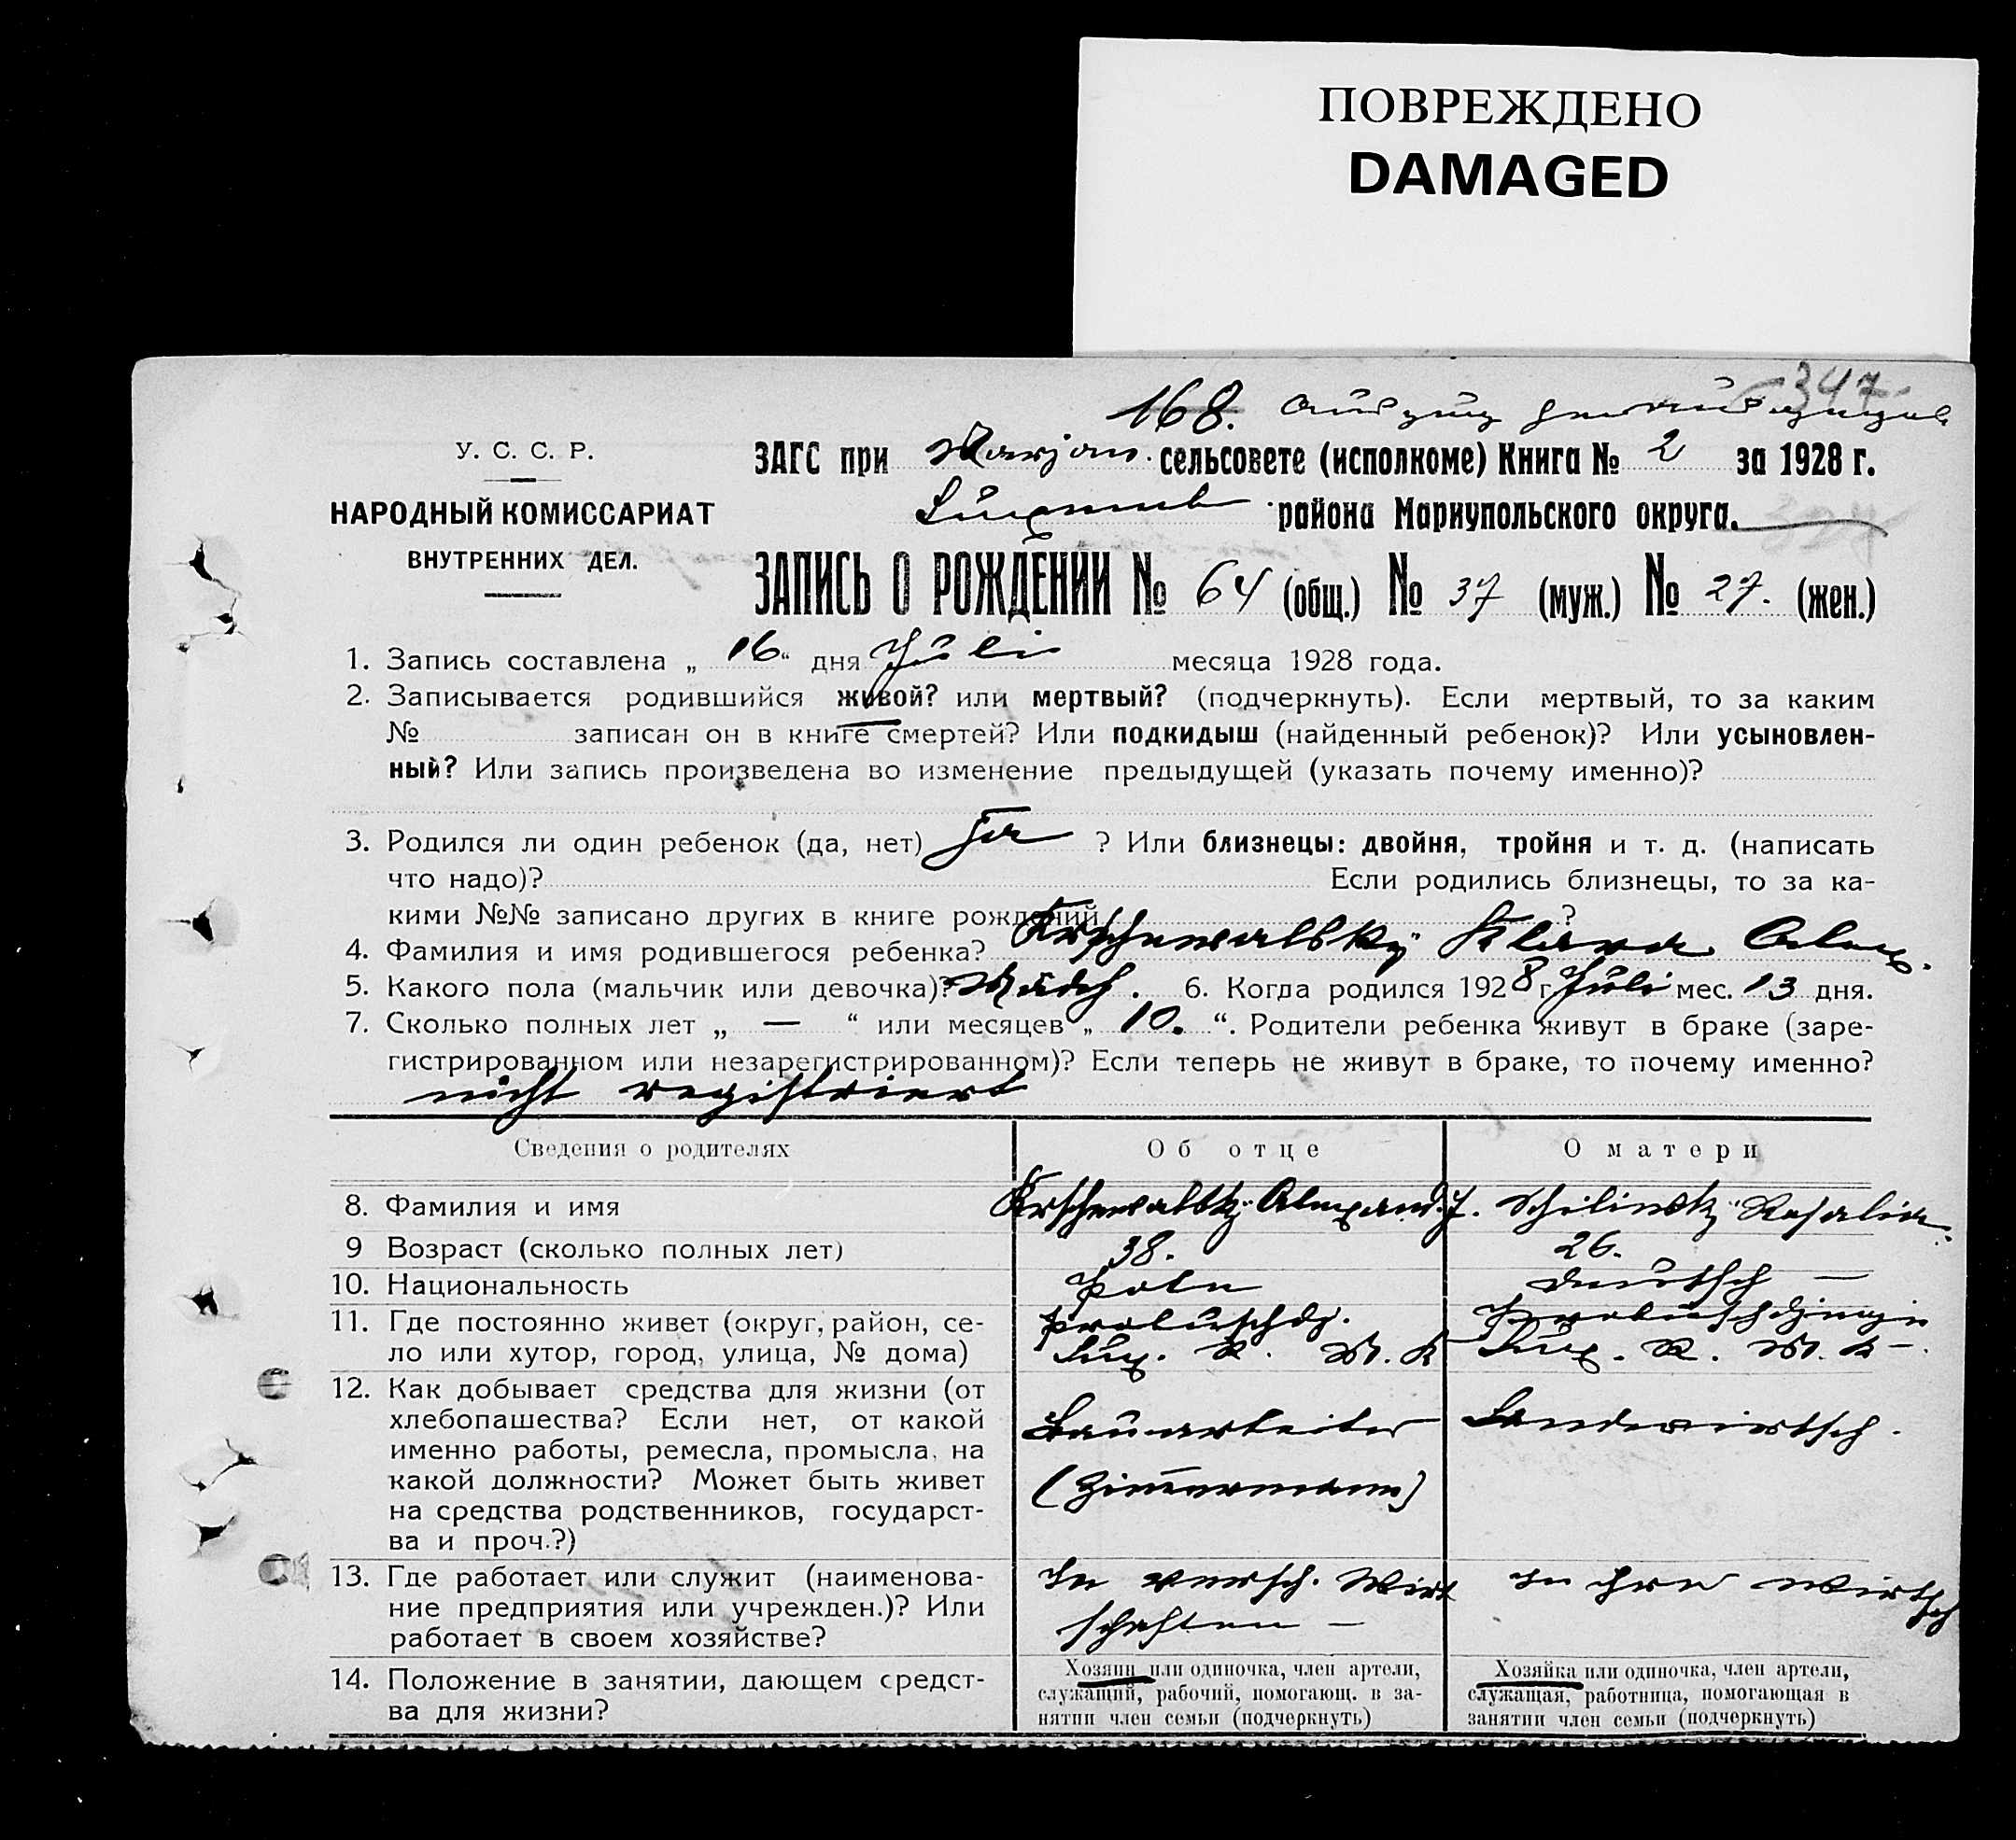 ПОВРЕЖДЕНО
DAMAGED
347.
168. Auszug
У. С. С. Р.
ЗАГС при Marjan. сельсовете (исполкоме) Книга № 2 за 1928 г.
НАРОДНЫЙ КОМИССАРИАТ
района Мариупольского округа.
ВНУТРЕННИХ ДЕЛ.
ЗАПИСЬ О РОЖДЕНИИ № 64 (общ.) № 37 (муж.) № 27. (жен.)
1. Запись составлена „ 16 “ дня Juli месяца 1928 года.
2. Записывается родившийся живой? или мертвый? (подчеркнуть). Если мертвый, то за каким
№ записан он в книге смертей? Или подкидыш (найденный ребенок)? Или усыновлен-
ный? Или запись произведена во изменение предыдущей (указать почему именно)?
3. Родился ли один ребенок (да, нет) Ja ? Или близнецы: двойня, тройня и т. д. (написать
что надо)? Если родились близнецы, то за ка-
кими №№ записано других в книге рождений ?
4. Фамилия и имя родившегося ребенка? Krschewalsky Klara Alex.
5. Какого пола (мальчик или девочка)? Mädch. 6. Когда родился 1928 г. Juli мес. 13 дня.
7. Сколько полных лет „ — “ или месяцев „ 10. “. Родители ребенка живут в браке (заре-
гистрированном или незарегистрированном)? Если теперь не живут в браке, то почему именно?
nicht registriert
Сведения о родителях Об отце О матери
8. Фамилия и имя Krschewalsky Alexand. J. Schilinsky Rosalia.
9 Возраст (сколько полных лет) 38. 26.
10. Национальность Pole deutsch —
11. Где постоянно живет (округ, район, се-
ло или хутор, город, улица, № дома) Lux. R. M. K Lux. R. M. K —.
12. Как добывает средства для жизни (от
хлебопашества? Если нет, от какой Bauarbeiter Landwirtsch.
именно работы, ремесла, промысла, на
какой должности? Может быть живет (Zimmermann)
на средства родственников, государст-
ва и проч.?)
13. Где работает или служит (наименова- In versch. Wirt In ihre Wirtsch
ние предприятия или учрежден.)? Или schaften —
работает в своем хозяйстве?
14. Положение в занятии, дающем средст-
ва для жизни?
Хозяин или одиночка, член артели,
служащий, рабочий, помогающ. в за-
нятии член семьи (подчеркнуть)
Хозяйка или одиночка, член артели,
служащая, работница, помогающая в
занятии член семьи (подчеркнуть)